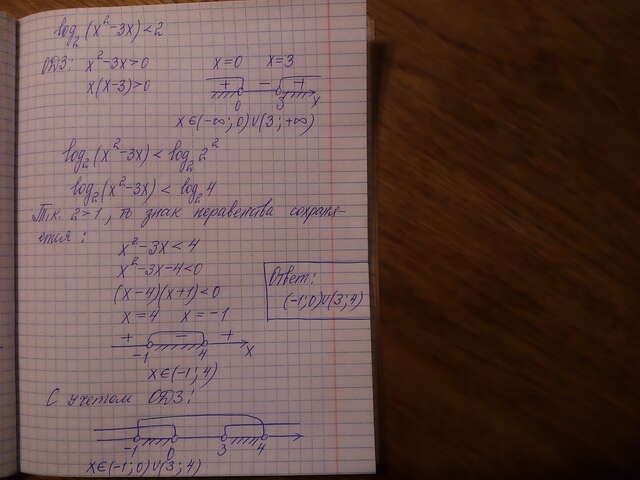 log₂(x²-3x)<2
ОДЗ: x²-3x>0 x=0 x=3
x(x-3)>0 + - +
0 3 x
x∈(-∞;0)∪(3;+∞)
log₂(x²-3x)<log₂2²
log₂(x²-3x)<log₂4
Т.к. 2>1, то знак неравенства сохраня-
ется:
x²-3x<4
x²-3x-4<0
(x-4)(x+1)<0
x=4 x=-1
+ - +
-1 4 x
x∈(-1;4)
Ответ:
(-1;0)∪(3;4)
С учетом ОДЗ:
-1 0 3 4
x∈(-1;0)∪(3;4)